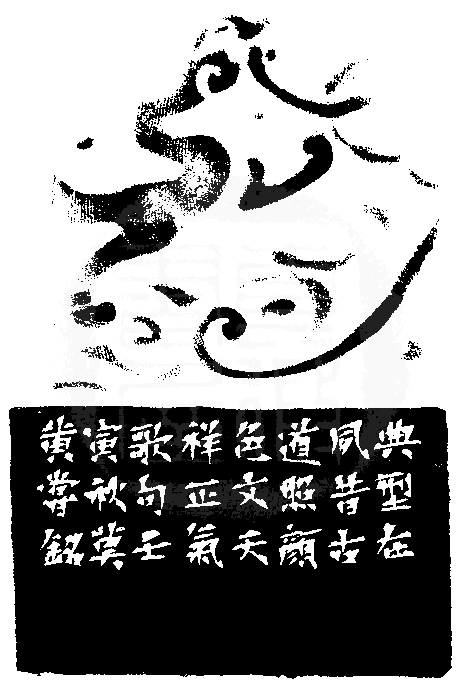 典型在
夙昔古
道照顏
色文天
祥正氣
歌句壬
寅秋莫
黄嘗銘